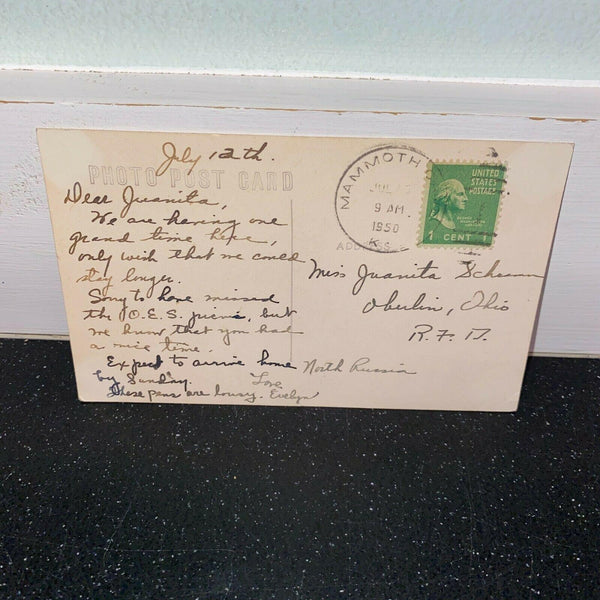 July 12th.
PHOTO POST CARD
Dear Juanita,
We are having one
grand time here,
only wish that we could
stay longer.
Sorry to have missed
the O.E.S. picnic, but
we know that you had
a nice time.
Expect to arrive home
by Sunday.
Love,
These pens are lousy. Evelyn
MAMMOTH
JUL
9 AM
1950
K
UNITED
STATES
POSTAGE
1 CENT 1
ADDRESS
Miss Juanita
Oberlin, Ohio
R.F.D.
North Russia